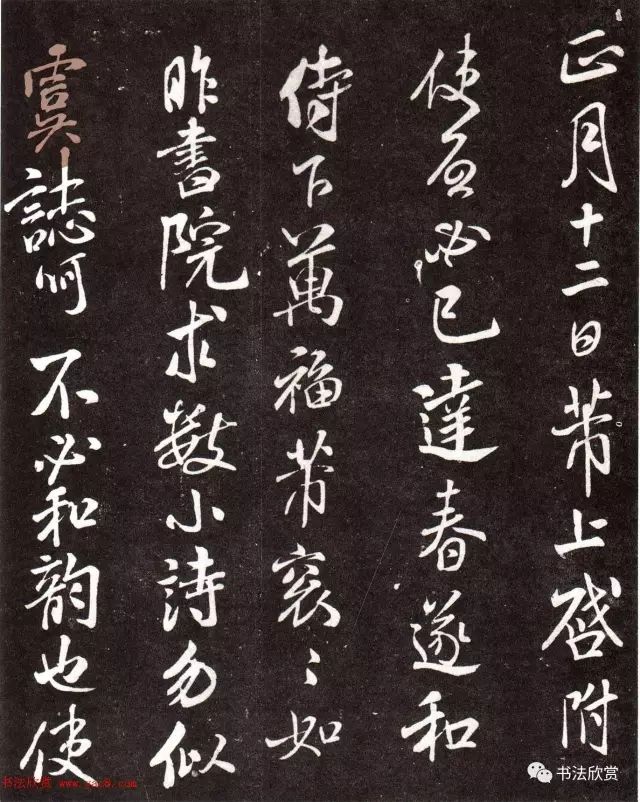 正月十二日芾上啓附
使必已達春遂和
侍下萬福芾衮〻如
昨書院求數小詩勿似
虞誌呵 不必和韵也使
书法欣赏 www.sac8.com
书法欣赏